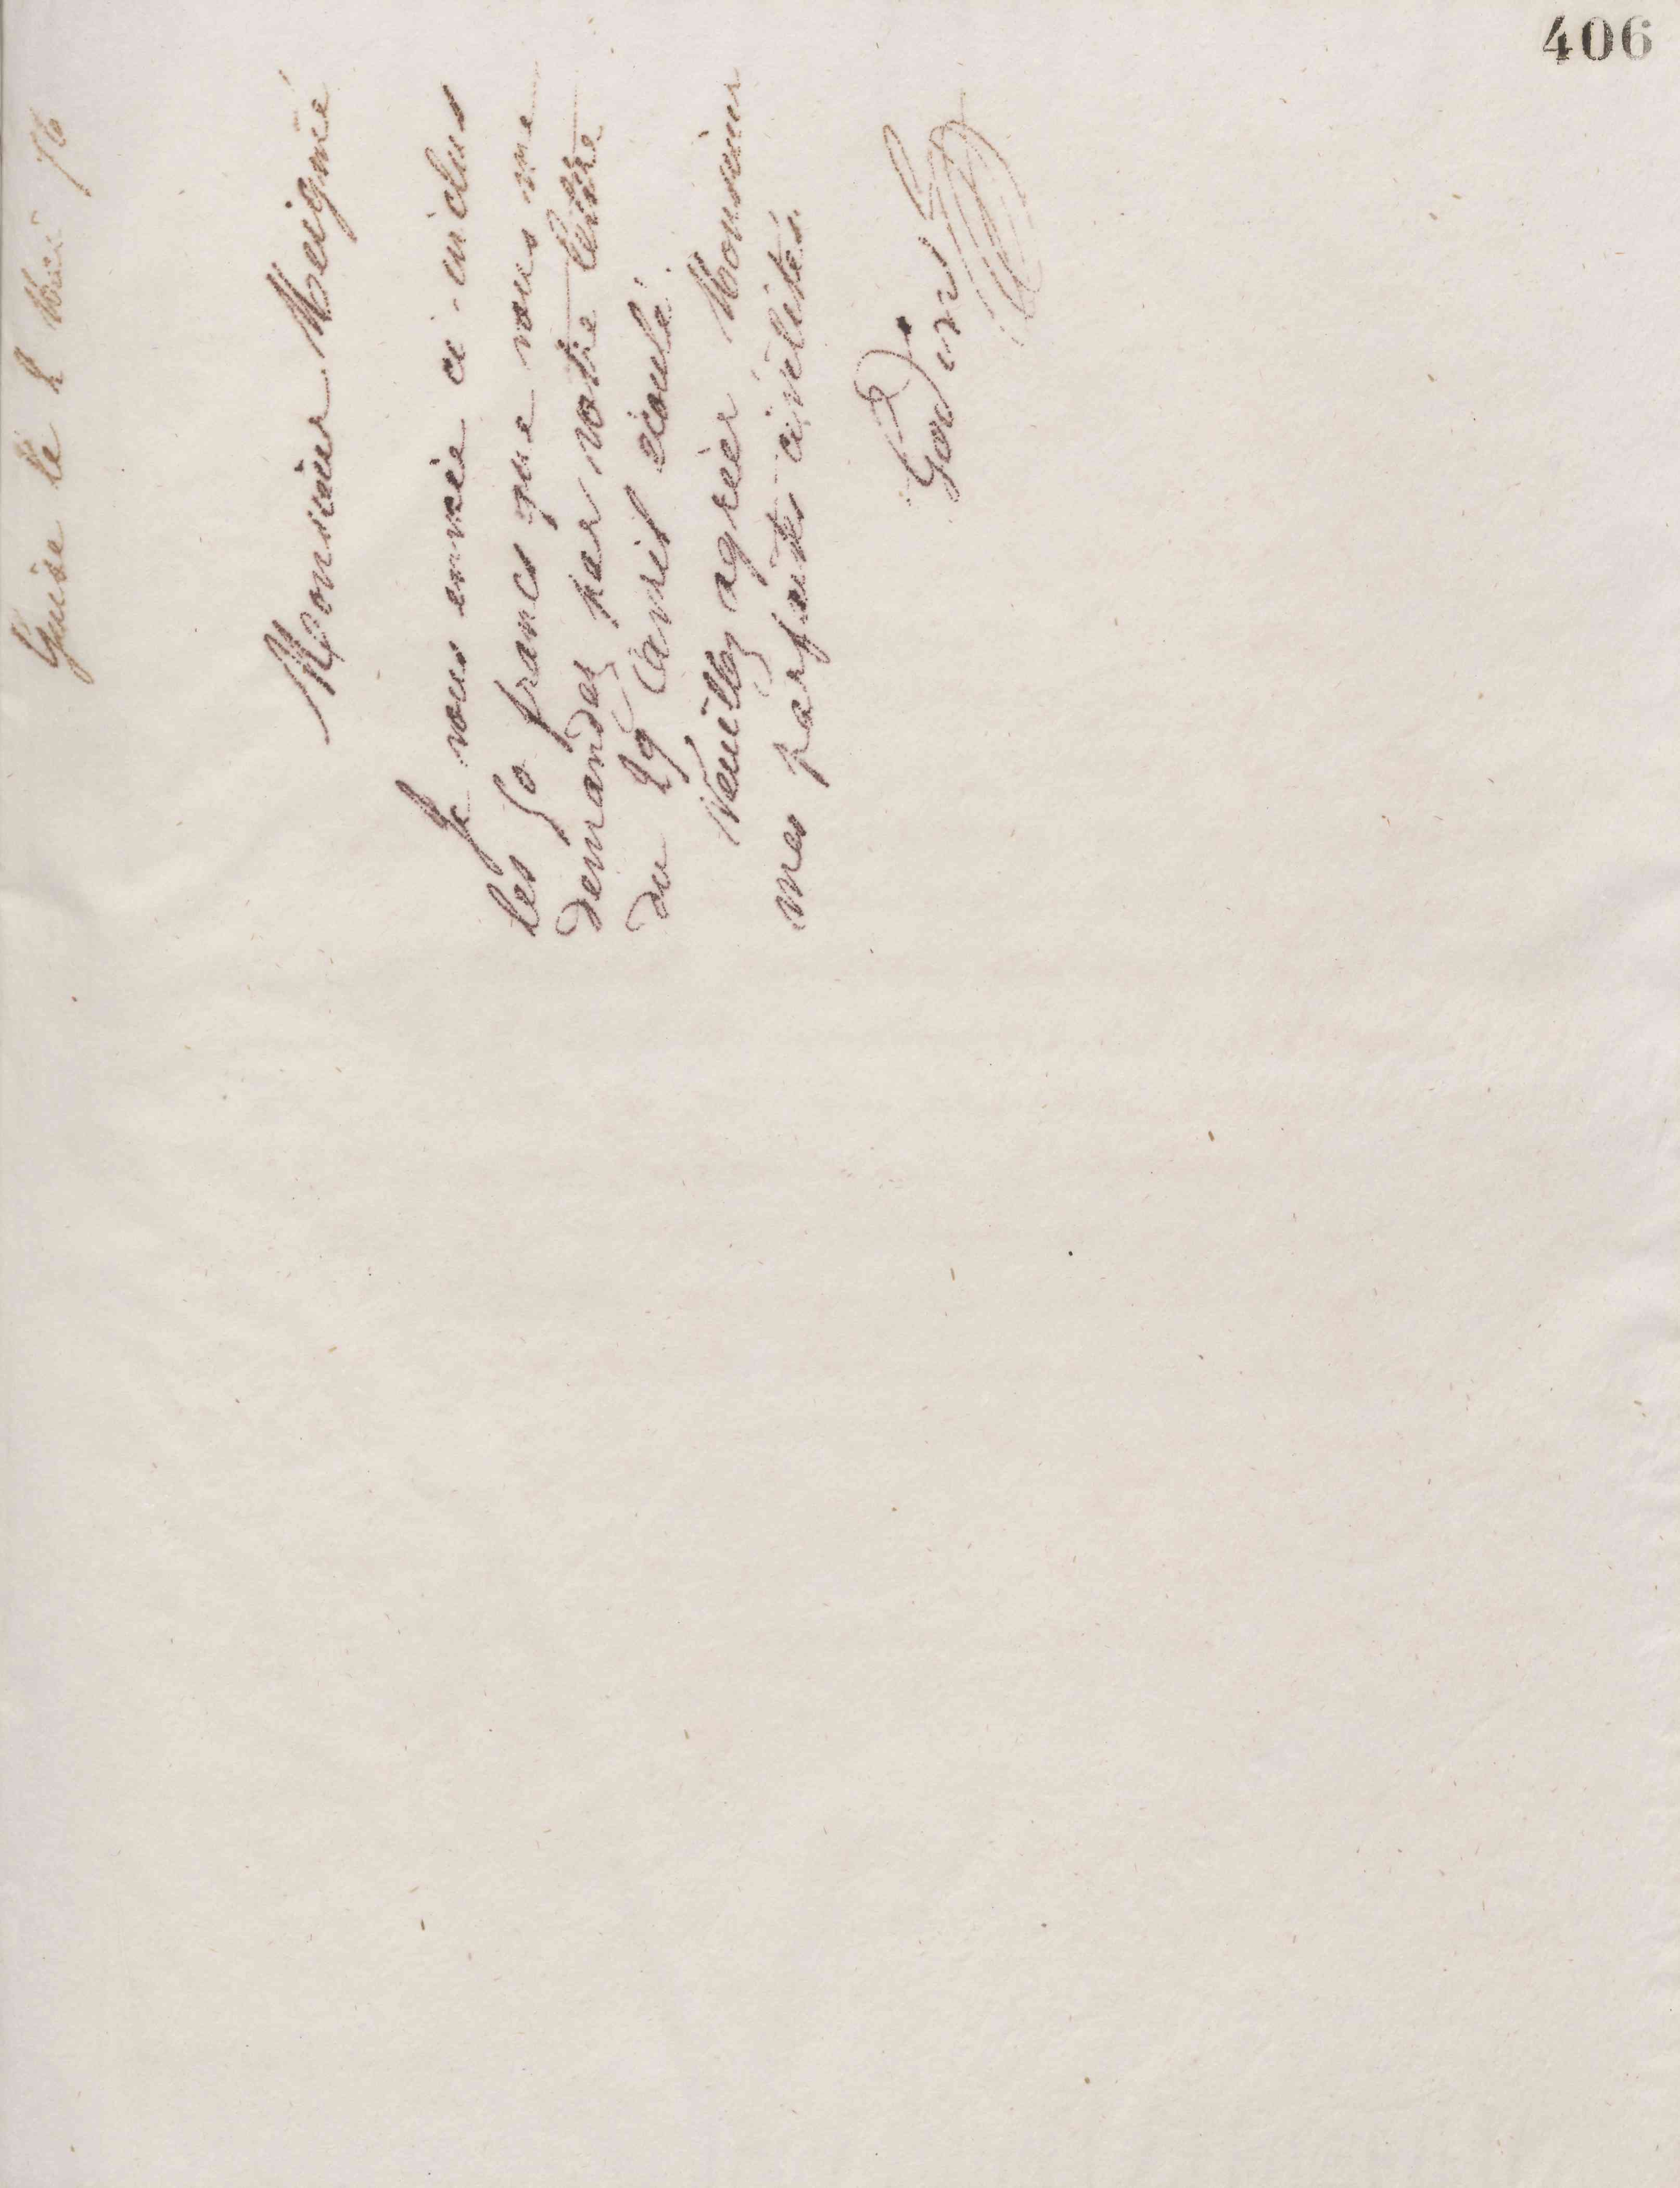 406
Guise le 2 Mai 76
Monsieur Meigné
Je vous envoie ci-inclus
les 50 francs que vous me
demandez par votre lettre
du 29 avril écoulé.
Veuillez agréer Monsieur
mes parfaites civilités.
Godin